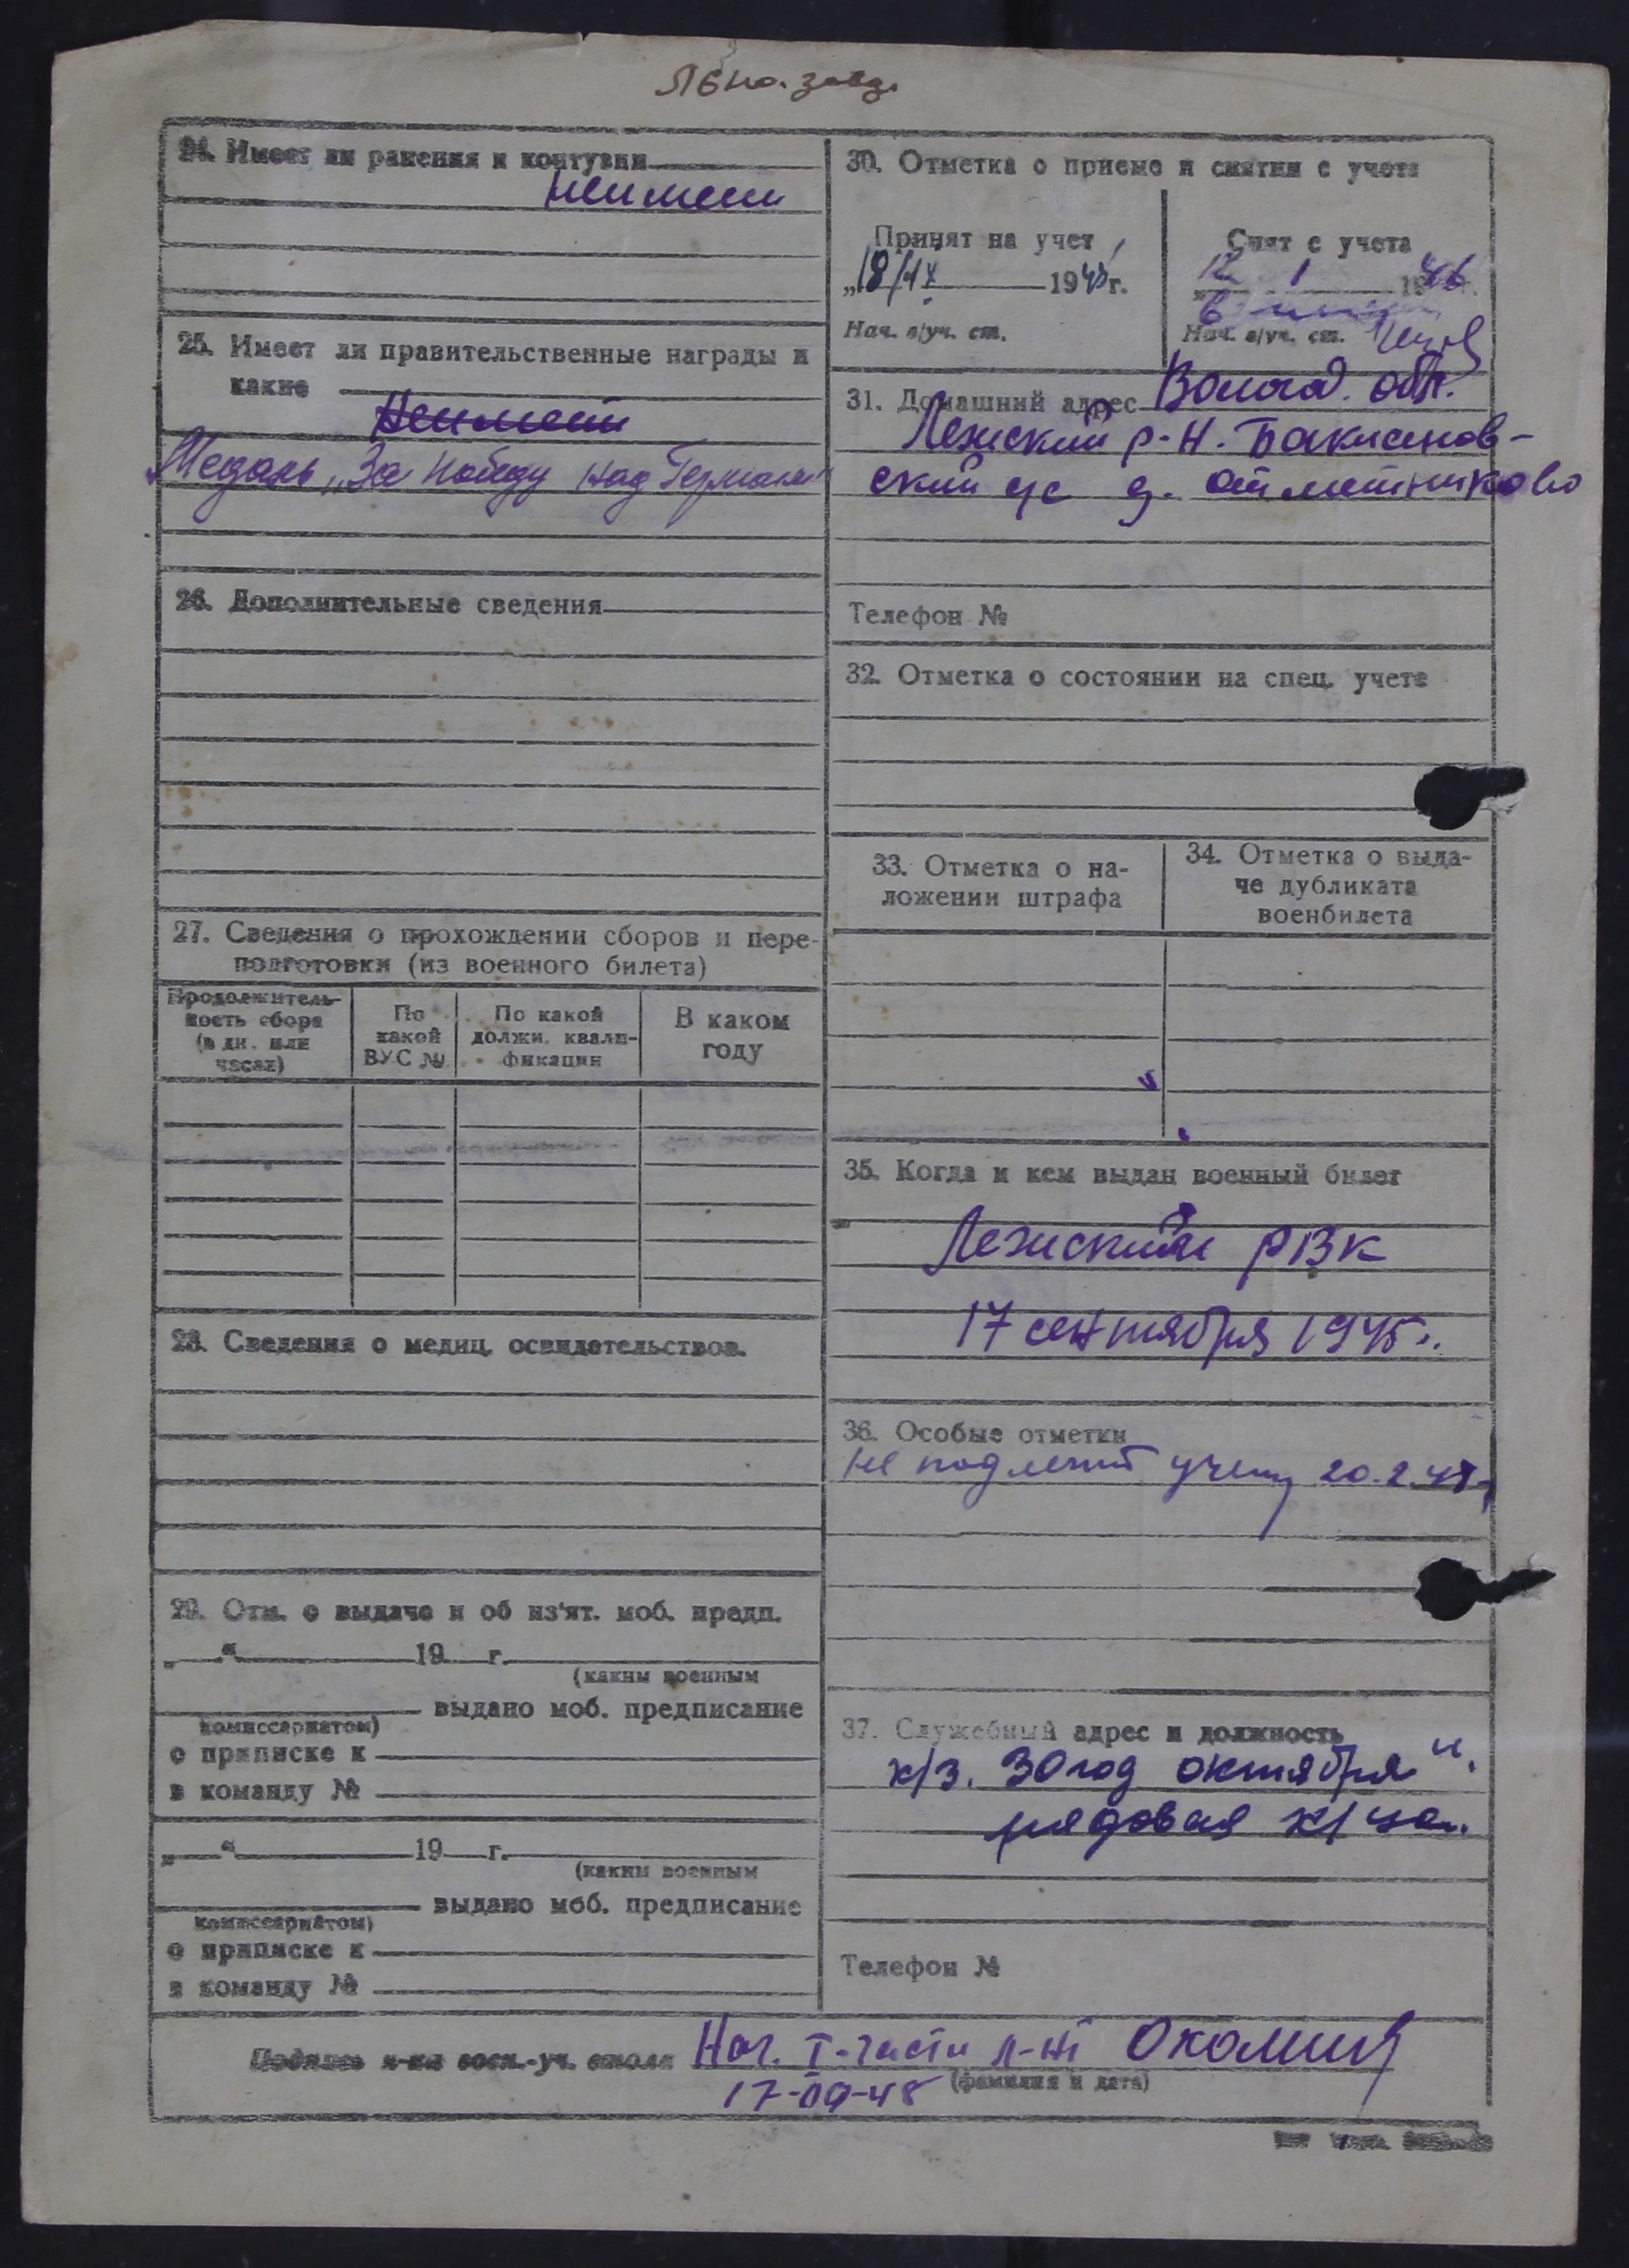 Льно. завд.
24. Имеет ли ранения и контузии
неимеет
25. Имеет ли правительственные награды и
какие
Неимеет
Медаль „За победу над Германи"
26. Дополнительные сведения
27. Сведения о прохождении сборов и пере-
подготовки (из военного билета)
Продолжитель-
ность сбора
(в дн. или
часах)
По
какой
ВУС №
По какой
должн. квали-
фикации
В каком
году
28. Сведения о медиц. освидетельствов.
29. Отм. о выдаче и об из'ят. моб. предп.
„ “ 19 г.
(каким военным
выдано моб. предписание
комиссариатом)
о приписке к
в команду №
„ “ 19 г.
(каким военным
выдано моб. предписание
комиссариатом)
о приписке к
в команду №
30. Отметка о приеме и снятии с учета
Принят на учет
„18/IX 1945 г.
Нач. в/уч. ст.
Снят с учета
12 1 1946 г.
Нач. в/уч. ст.
31. Домашний адрес Волог. обл.
Лежский р-н. Бакланов-
ский с/с д. Отметниково
Телефон №
32. Отметка о состоянии на спец. учете
33. Отметка о на-
ложении штрафа
34. Отметка о выда-
че дубликата
военбилета
35. Когда и кем выдан военный билет
Лежский РВК
17 сентября 1945 г.
36. Особые отметки
не подлежит учету 20.2.47
37. Служебный адрес и должность
к/з. 30 год октября".
рядовая к/ца.
Телефон №
Подпись н-ка воен.-уч. стола Нач. I-части л-нт Околиц
17-09-45 (фамилия и дата)